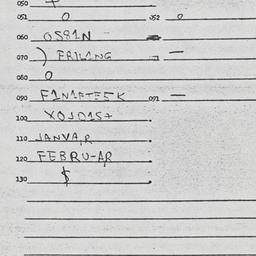 050
051 0 052 0
060 OS81N
070 ) FRILING
080 0
090 F1N1FTESK 091 —
100 XOJO1S+
110 JANVA,R
120 FEBRU-AR
130 $